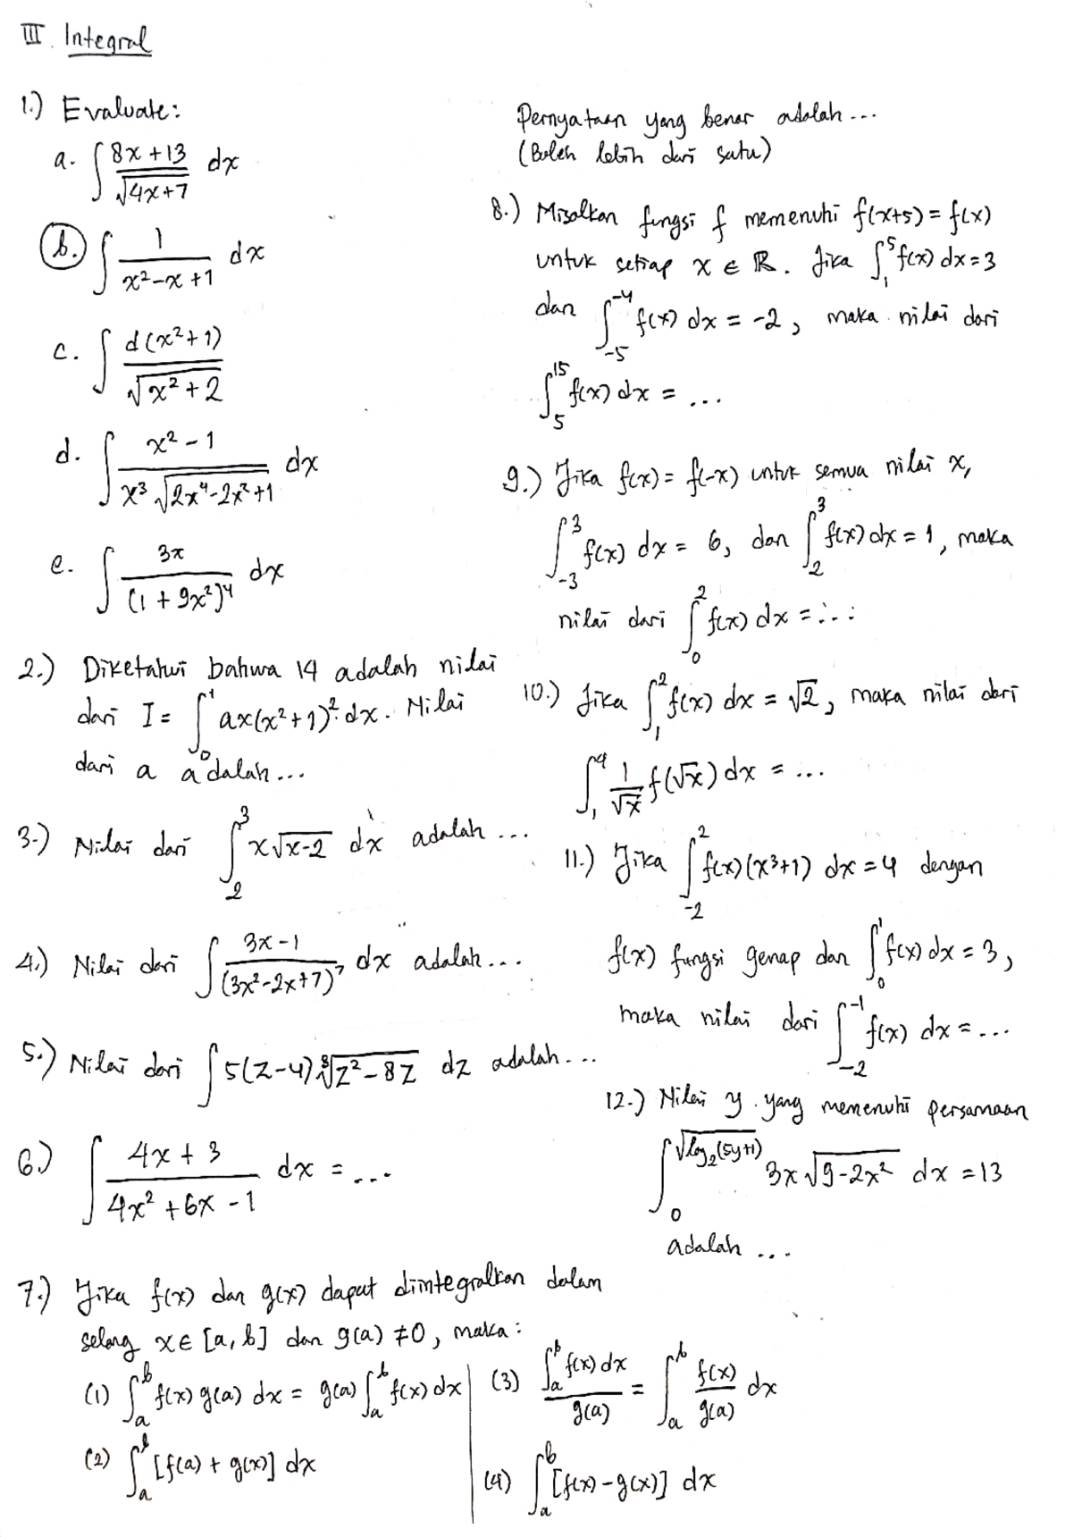 III. Integral
1.) Evaluate:
a. ∫ (8x+13)/√(4x+7) dx
b. ∫ 1/(x²-x+1) dx
c. ∫ d(x²+1)/√(x²+2)
d. ∫ (x²-1)/(x³√(2x⁴-2x²+1)) dx
e. ∫ 3x/(1+9x²)⁴ dx
2.) Diketahui bahwa 14 adalah nilai
dari I = ∫₀¹ ax(x²+1)² dx. Nilai
dari a adalah...
3.) Nilai dari ∫₂³ x√(x-2) dx adalah ...
4.) Nilai dari ∫ (3x-1)/(3x²-2x+7)⁷ dx adalah...
5.) Nilai dari ∫ 5(z-4) ⁸√(z²-8z) dz adalah...
6.) ∫ (4x+3)/(4x²+6x-1) dx = ...
7.) Jika f(x) dan g(x) dapat diintegralkan dalam
selang x ∈ [a,b] dan g(a) ≠ 0, maka:
(1) ∫ₐᵇ f(x) g(a) dx = g(a) ∫ₐᵇ f(x) dx
(2) ∫ₐᵇ [f(a) + g(x)] dx
(3) (∫ₐᵇ f(x) dx)/g(a) = ∫ₐᵇ f(x)/g(a) dx
(4) ∫ₐᵇ [f(x) - g(x)] dx
Pernyataan yang benar adalah...
(Boleh lebih dari satu)
8.) Misalkan fungsi f memenuhi f(x+5) = f(x)
untuk setiap x ∈ ℝ. Jika ∫₁⁵ f(x) dx = 3
dan ∫₋₅⁻⁴ f(x) dx = -2, maka nilai dari
∫₅¹⁵ f(x) dx = ...
9.) Jika f(x) = f(-x) untuk semua nilai x,
∫₋₃³ f(x) dx = 6, dan ∫₂³ f(x) dx = 1, maka
nilai dari ∫₀² f(x) dx = ...
10.) Jika ∫₁² f(x) dx = √2, maka nilai dari
∫₁⁴ 1/√x f(√x) dx = ...
11.) Jika ∫₋₂² f(x)(x³+1) dx = 4 dengan
f(x) fungsi genap dan ∫₀¹ f(x) dx = 3,
maka nilai dari ∫₋₂⁻¹ f(x) dx = ...
12.) Nilai y yang memenuhi persamaan
∫₀^√(log₂(5y+1)) 3x√(9-2x²) dx = 13
adalah ...